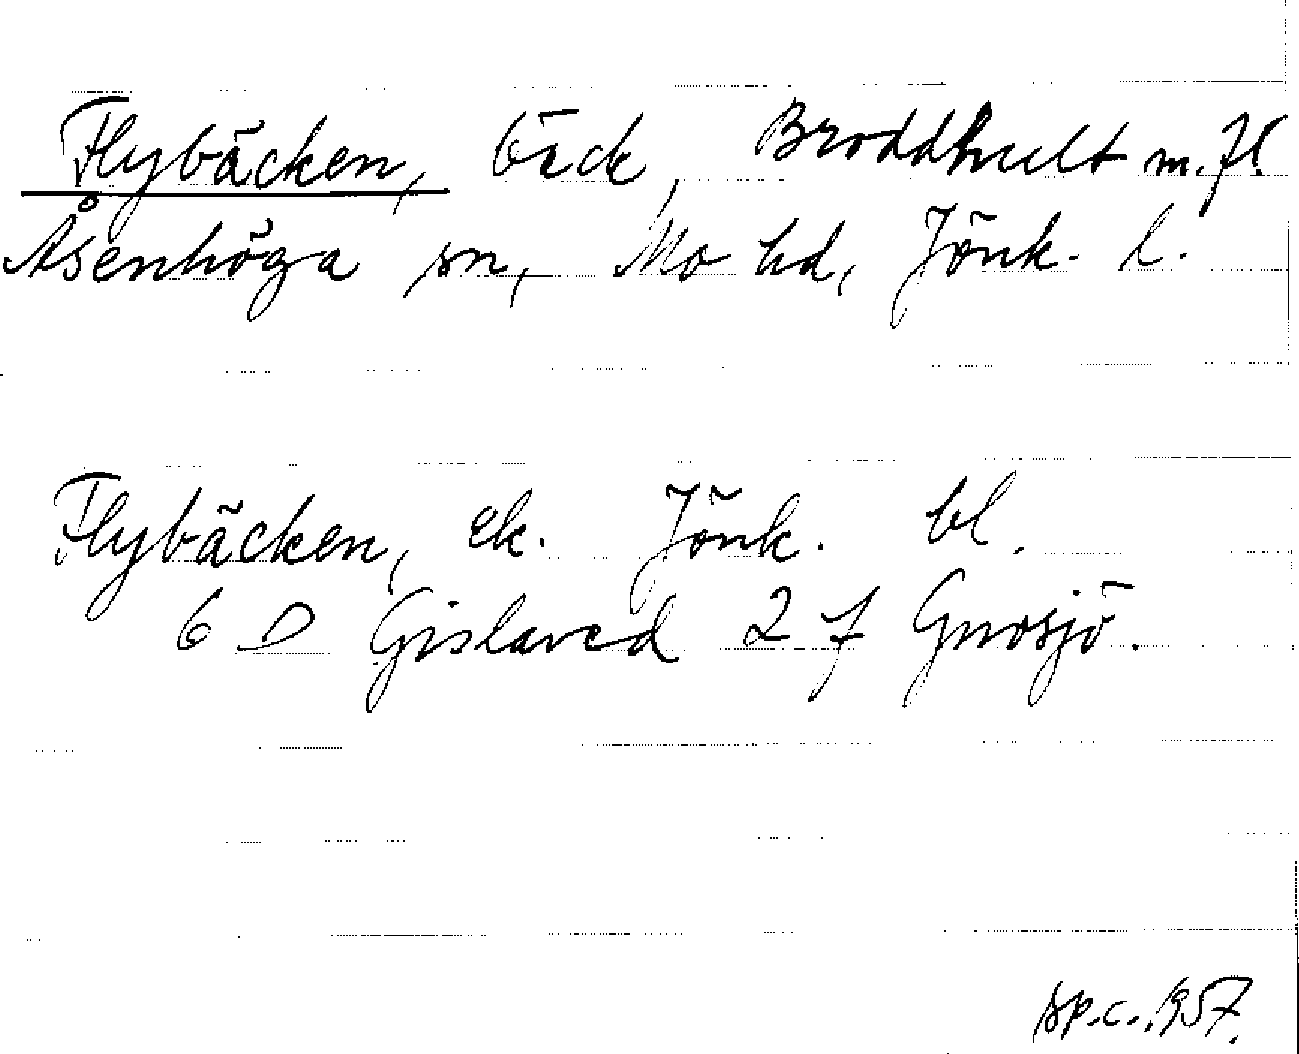 Flybäcken, bäck, Broddhult m. fl.
Åsenhöga sn, Mo hd, Jönk. l.
Flybäcken, ek. Jönk. bl.
6 D Gislaved 2 f Gnosjö.
sp.c. 1957.